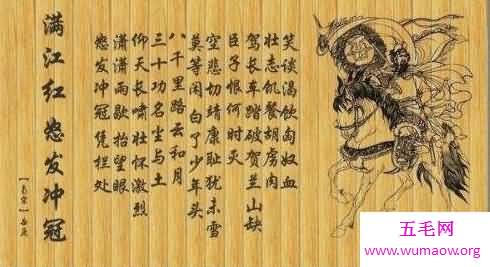 满江红 怒发冲冠
【南宋】岳飞
怒发冲冠凭栏处
潇潇雨歇抬望眼
仰天长啸壮怀激烈
三十功名尘与土
八千里路云和月
莫等闲白了少年头
空悲切靖康耻犹未雪
臣子恨何时灭
驾长车踏破贺兰山缺
壮志饥餐胡虏肉
笑谈渴饮匈奴血
五毛网
www.wumaow.org